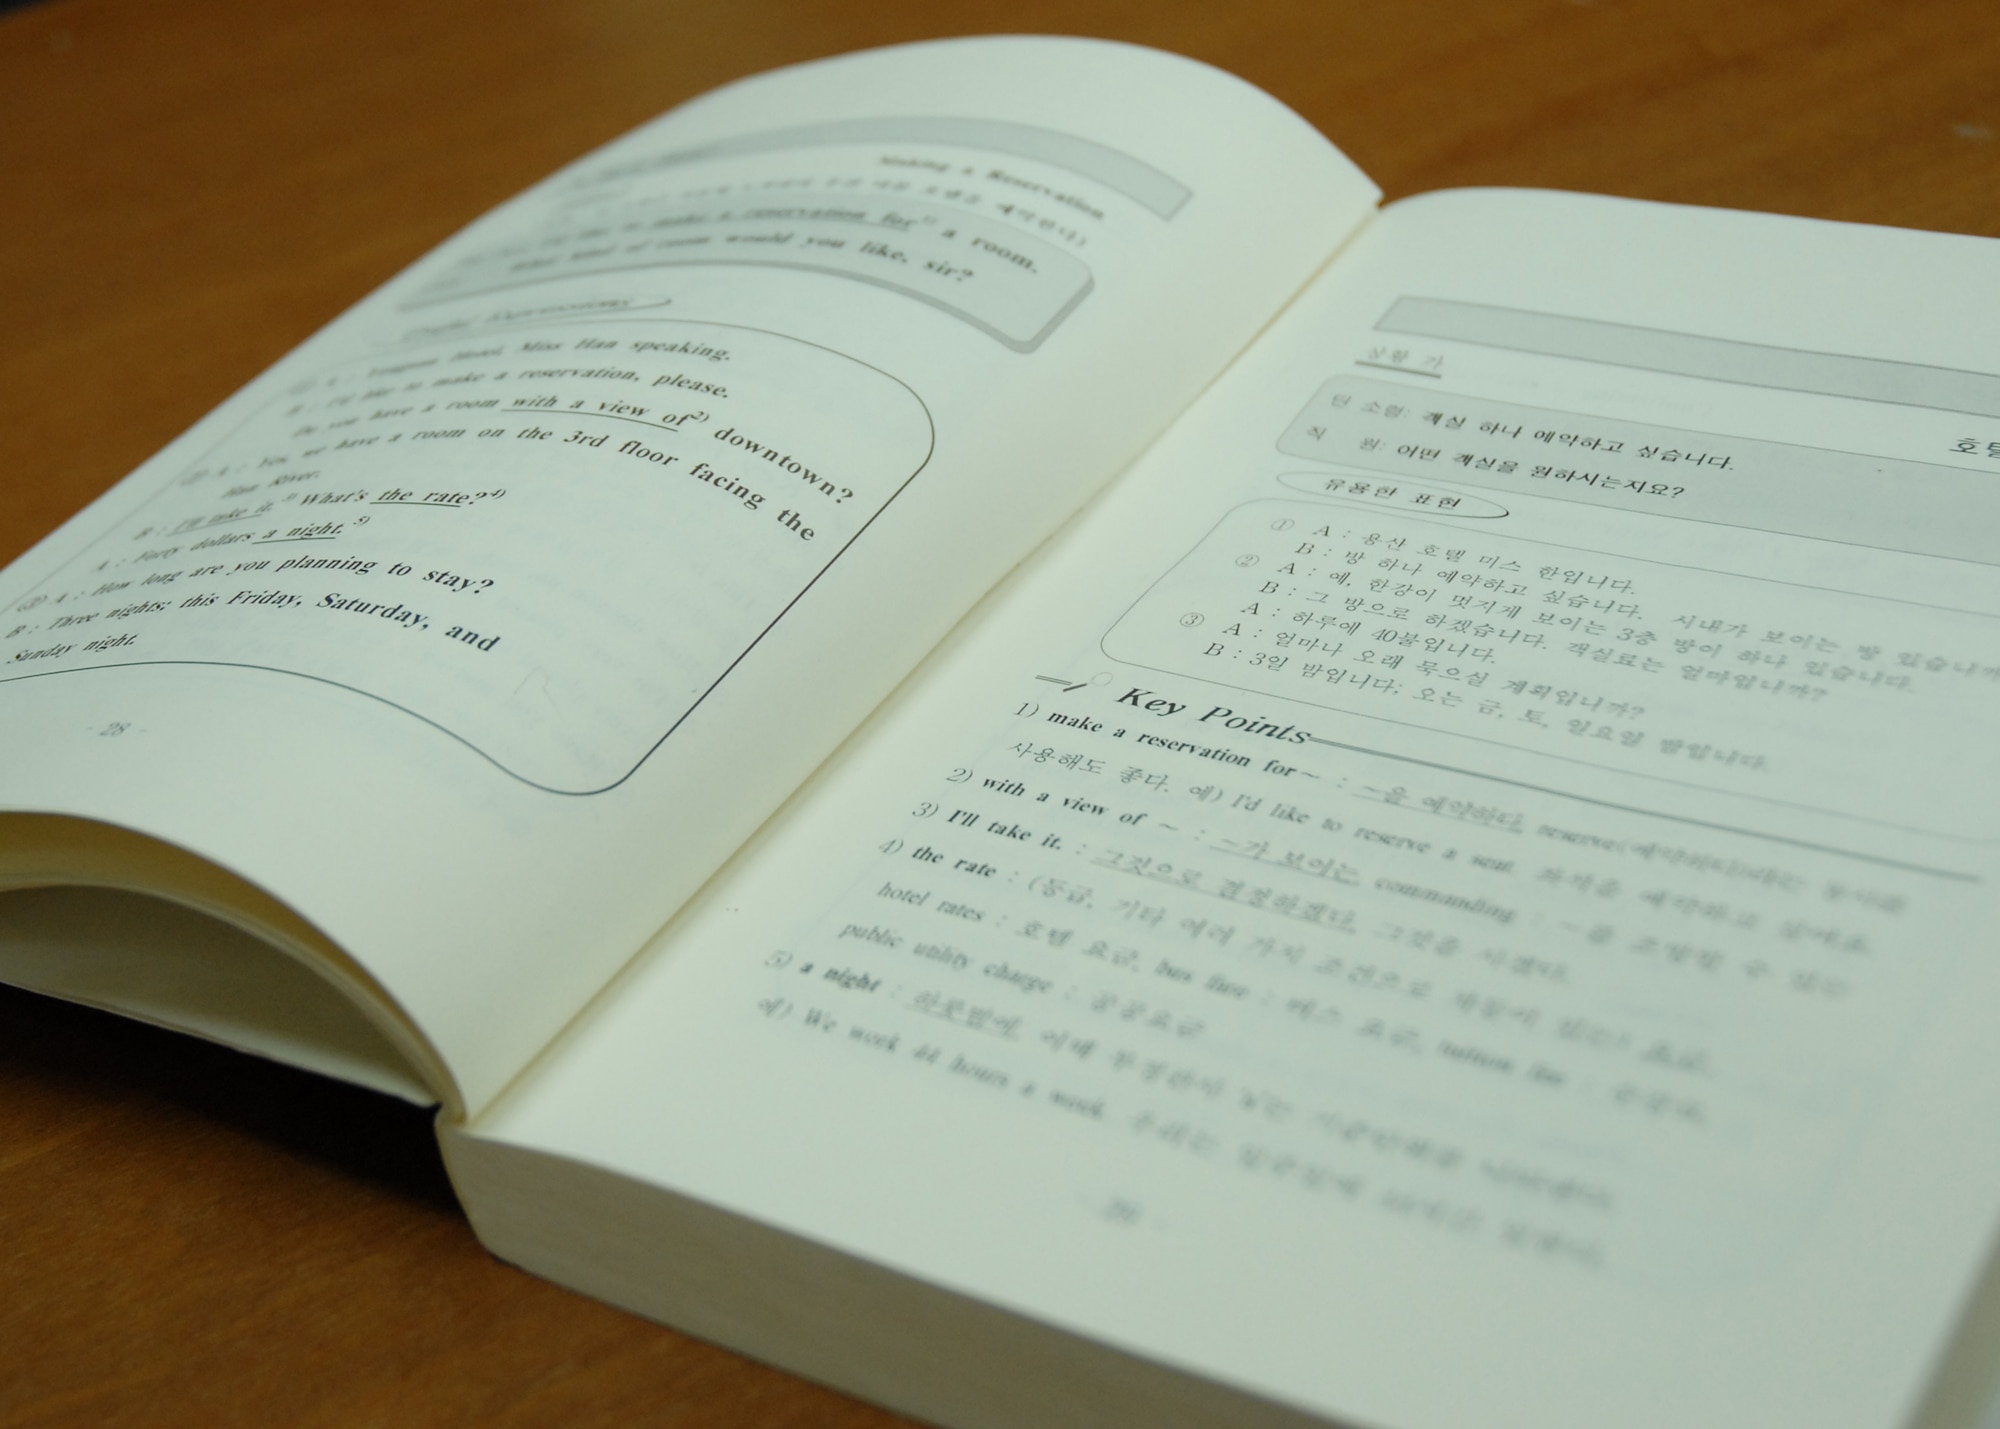 Making a Reservation
make a reservation for¹⁾ a room.
What kind of room would you like, sir?
Useful Expressions
① A : Yongsan Hotel, Miss Han speaking.
B : I'd like to make a reservation, please.
Do you have a room with a view of²⁾ downtown?
② A : Yes, we have a room on the 3rd floor facing the
Han River.
B : I'll take it.³⁾ What's the rate?⁴⁾
A : Forty dollars a night.⁵⁾
③ A : How long are you planning to stay?
B : Three nights; this Friday, Saturday, and
Sunday night.
- 28 -
호텔
상황 7
틴 소령: 객실 하나 예약하고 싶습니다.
직 원: 어떤 객실을 원하시는지요?
유용한 표현
① A : 용산 호텔 미스 한입니다.
B : 방 하나 예약하고 싶습니다. 시내가 보이는 방 있습니까
② A : 예, 한강이 멋지게 보이는 3층 방이 하나 있습니다.
B : 그 방으로 하겠습니다. 객실료는 얼마입니까?
A : 하루에 40불입니다.
③ A : 얼마나 오래 묵으실 계획입니까?
B : 3일 밤입니다; 오는 금, 토, 일요일 밤입니다.
Key Points
1) make a reservation for~ : ~을 예약하다, reserve(예약하다)라는 동사를
사용해도 좋다. 예) I'd like to reserve a seat. 좌석을 예약하고 싶어요.
2) with a view of ~ : ~가 보이는, commanding : ~을 조망할 수 있는
3) I'll take it. : 그것으로 결정하겠다, 그것을 사겠다.
4) the rate : (등급, 기타 여러 가지 조건으로 차등이 있는) 요금,
hotel rates : 호텔 요금, bus fare : 버스 요금, tuition fee : 수업료,
public utility charge : 공공요금
5) a night : 하룻밤에, 이때 부정관사 a는
예) We work 44 hours a week. 우리는 일주일에
29